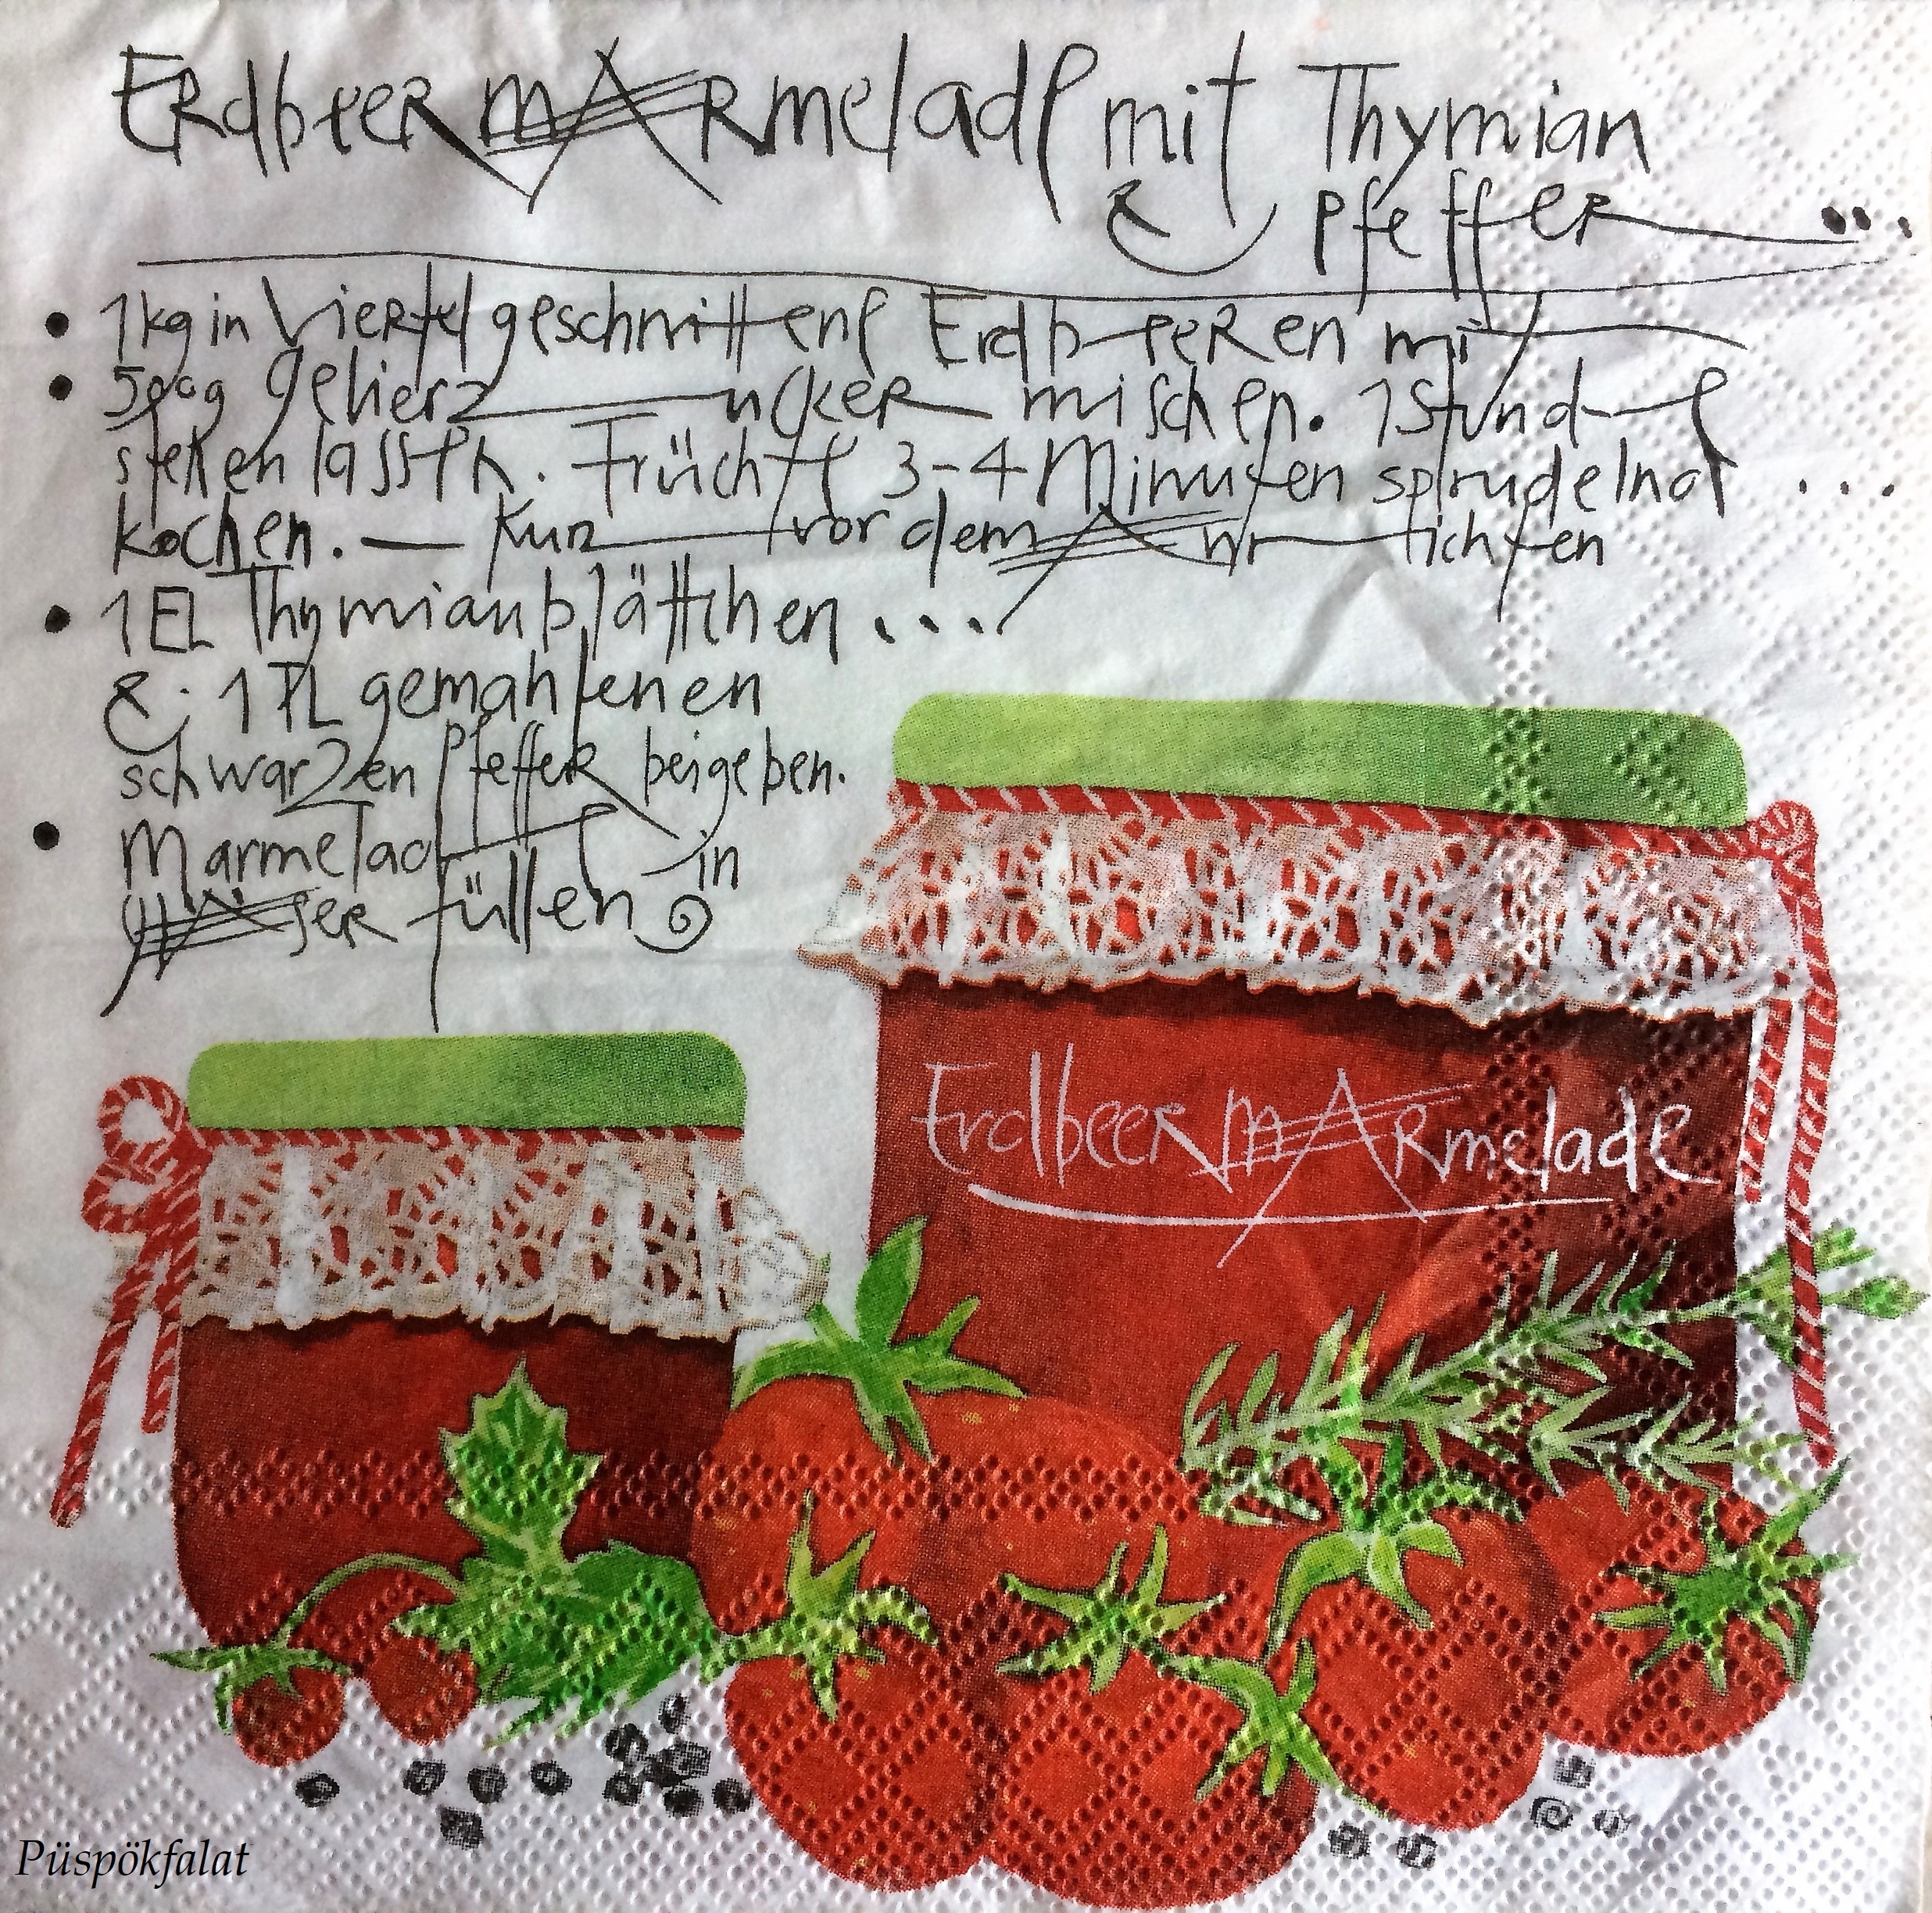 Erdbeermarmelade mit Thymian
& Pfeffer ...
• 1kg in Viertel geschnittene Erdbeeren mit
• 500g Gelierzucker mischen. 1 Stunde
stehen lassen. Früchte 3-4 Minuten sprudelnd ...
kochen. — Kurz vor dem Anrichten
• 1 EL Thymianblättchen ...
& 1 TL gemahlenen
schwarzen Pfeffer beigeben.
• Marmelade in
Gläser füllen
Erdbeermarmelade
Püspökfalat